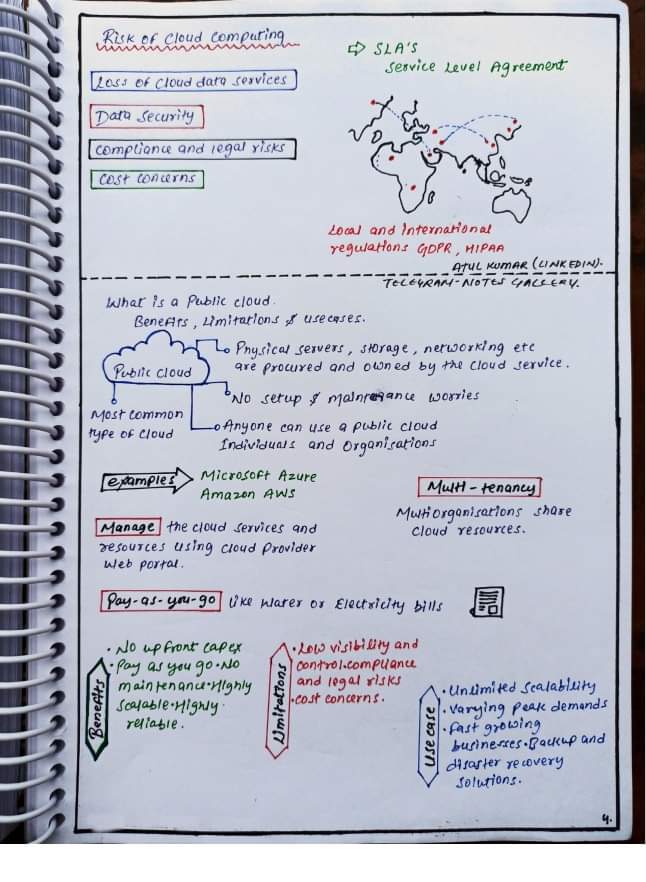 Risk of cloud computing
Loss of cloud data services
Data security
compliance and legal risks
cost concerns
SLA's
Service Level Agreement
Local and International
regulations GDPR, HIPAA
ATUL KUMAR (LINKEDIN).
TELEGRAM-NOTES GALLERY.
What is a Public cloud.
Benefits, Limitations & usecases.
Public cloud
Physical servers, storage, networking etc
are procured and owned by the cloud service.
No setup & maintenance worries
Most common
type of cloud
Anyone can use a public cloud
Individuals and Organisations
examples
Microsoft Azure
Amazon AWS
Multi-tenancy
Multiorganisations share
cloud resources.
Manage the cloud services and
resources using cloud Provider
Web portal.
Pay-as-you-go like Water or Electricity bills
Benefits
• No upfront capex
• Pay as you go • No
maintenance • Highly
scalable • Highly
reliable.
Limitations
• Low visibility and
control • compliance
and legal risks
• cost concerns.
Use case
• Unlimited Scalability
• Varying peak demands
• Fast growing
businesses • Backup and
disaster recovery
solutions.
4.